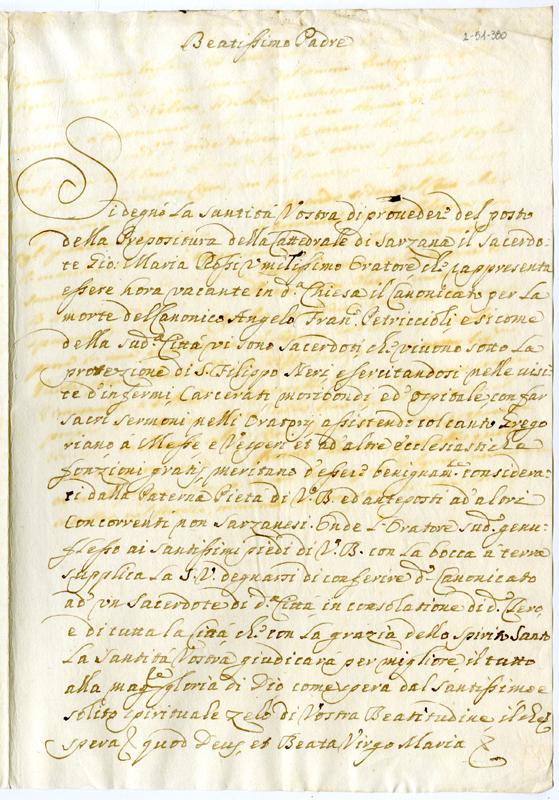 Beatissimo Padre
2-51-380
Si degnò La Santità Vostra di proveder del posto
della Prepositura della Cattedrale di Sarzana il Sacerdo-
te Gio: Maria Rossi Umilissimo Oratore il rappresenta
essere hora vacante in d.ª Chiesa il Canonicato per la
morte del Canonico Angelo Fran.º Petriccioli e si come
della sud.ª Città vi sono Sacerdoti che vivono sotto La
protezione di S. Filippo Neri esercitandosi nelle visi-
te d'infermi Carcerati moribondi ed ospitale, con far
Sacri Sermoni nelli Oratorij assistendo col canto Grego
riano à Messe e Vesperi et ad altre ecclesiastiche
fonzioni gratis, meritano d'essere benignam.te considera-
ti dalla Paterna Pietà di V.ª B. ed anteposti ad altri
Concorrenti non Sarzanesi. Onde L'Oratore sud.º genu-
flesso ai Santissimi piedi di V.ª B. con la bocca à terra
supplica La S.V. degnarsi di conferire d.º Canonicato
ad un Sacerdote di d.ª Città, in consolatione di d.º Clero,
e di tutta la Città che con La grazia dello Spirito Santo
La Santità Vostra giudicarà per migliore il tutto
alla mag.re gloria di Dio come spera dal Santissimo e
solito spirituale zelo di Vostra Beatitudine, il che
spera quod Deus, et Beata Virgo Maria